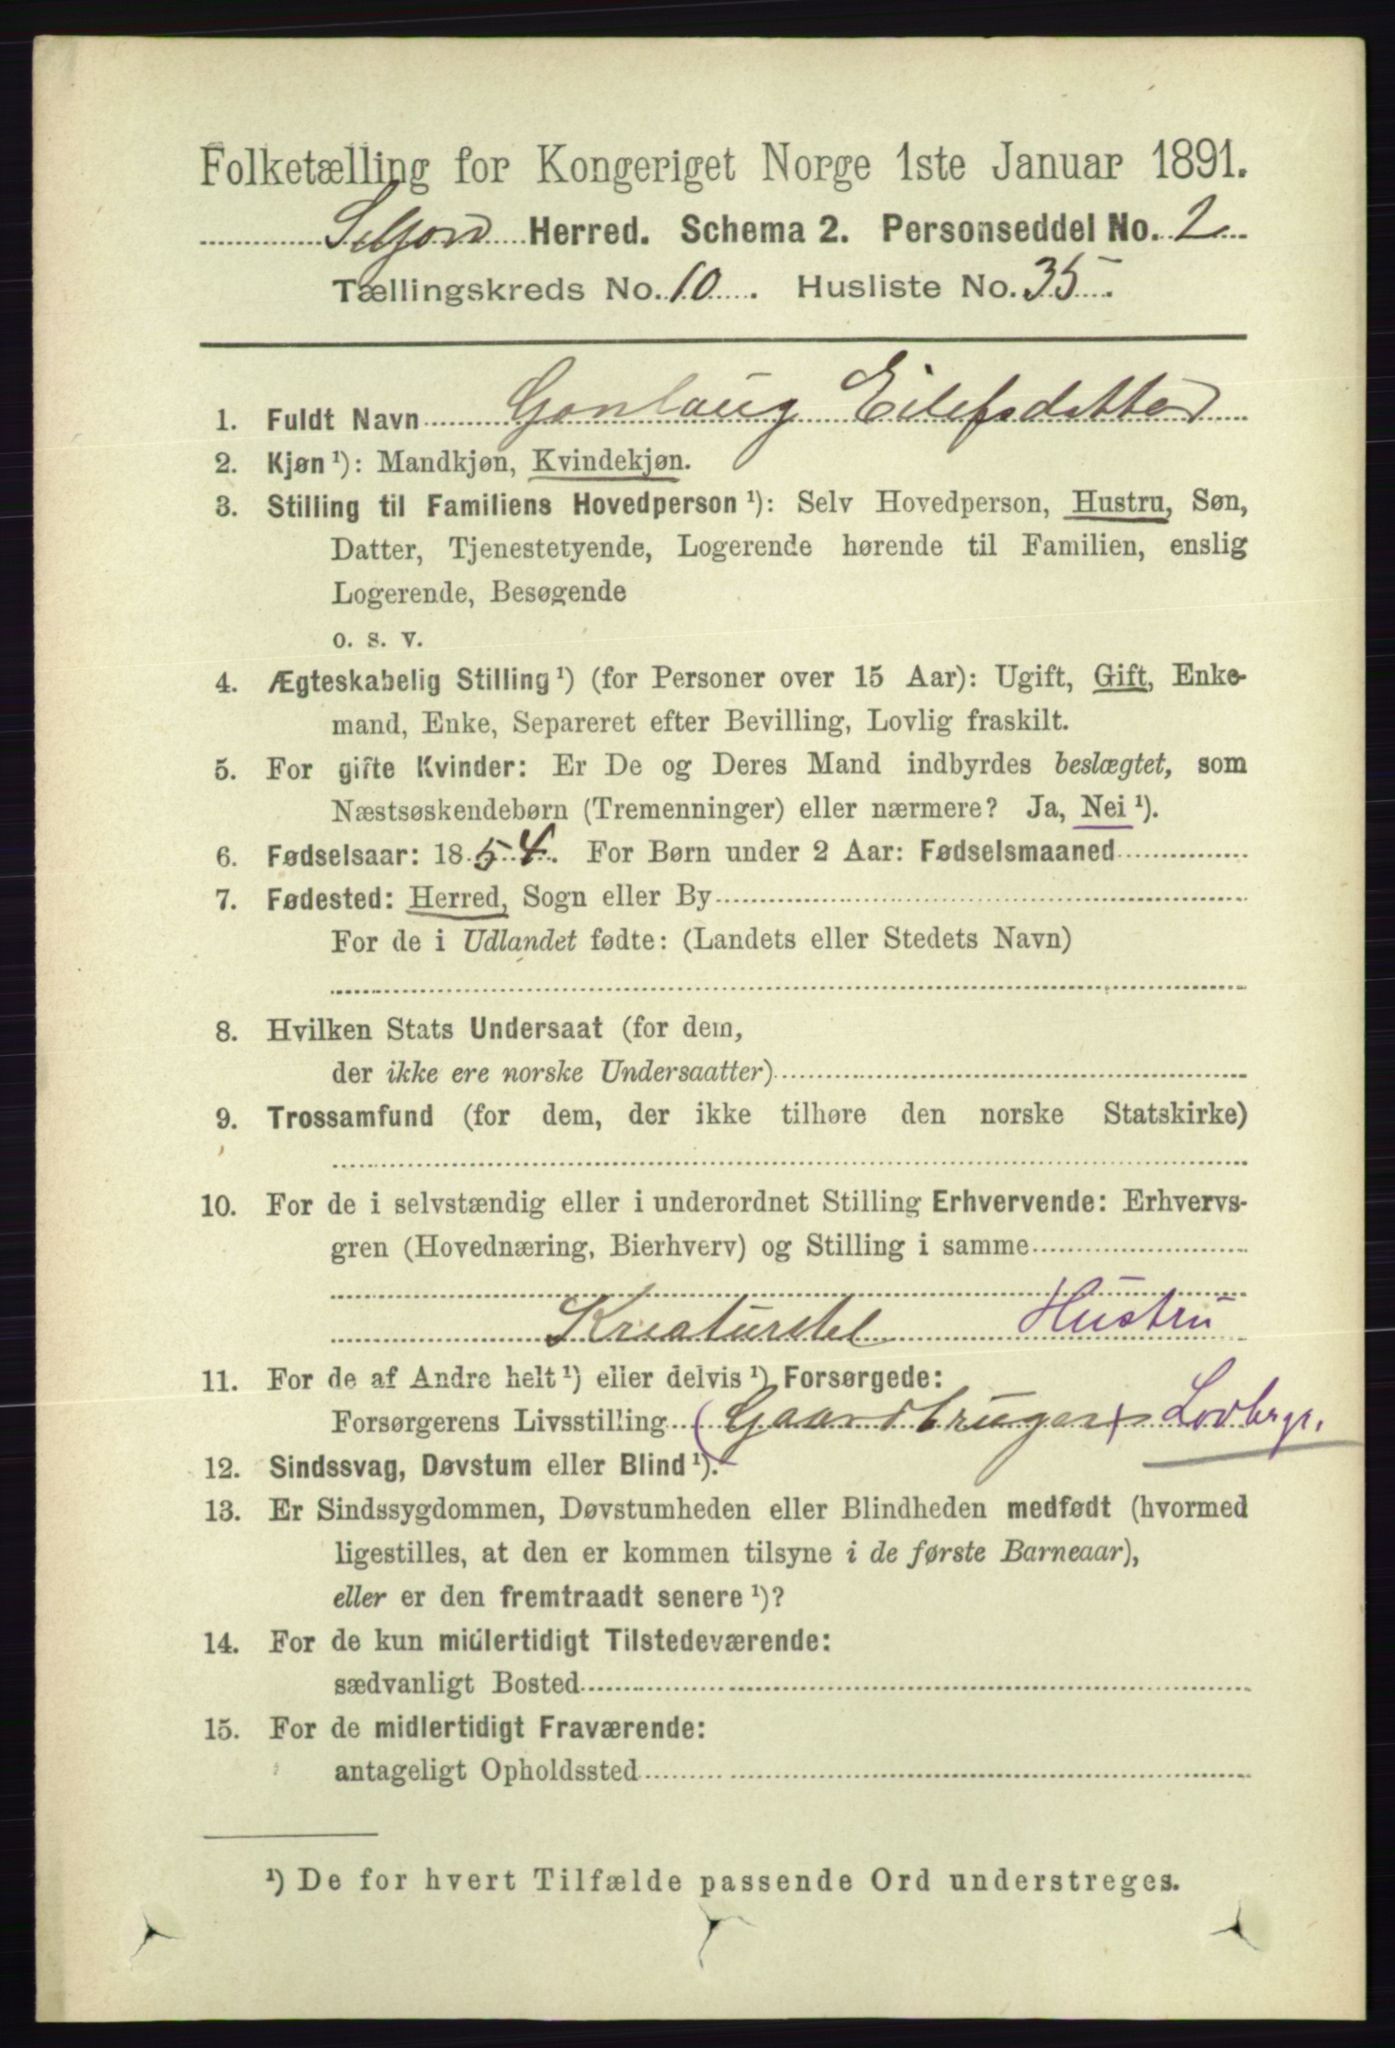 Folketælling for Kongeriget Norge 1ste Januar 1891.
Seljord Herred. Schema 2. Personseddel No. 2
Tællingskreds No. 10. Husliste No. 35.
1. Fuldt Navn Gonlaug Eilefsdatter
2. Kjøn ¹): Mandkjøn, Kvindekjøn.
3. Stilling til Familiens Hovedperson ¹): Selv Hovedperson, Hustru, Søn,
Datter, Tjenestetyende, Logerende hørende til Familien, enslig
Logerende, Besøgende
o. s. v.
4. Ægteskabelig Stilling ¹) (for Personer over 15 Aar): Ugift, Gift, Enke-
mand, Enke, Separeret efter Bevilling, Lovlig fraskilt.
5. For gifte Kvinder: Er De og Deres Mand indbyrdes beslægtet, som
Næstsøskendebørn (Tremenninger) eller nærmere? Ja, Nei ¹).
6. Fødselsaar: 1854. For Børn under 2 Aar: Fødselsmaaned
7. Fødested: Herred, Sogn eller By
For de i Udlandet fødte: (Landets eller Stedets Navn)
8. Hvilken Stats Undersaat (for dem,
der ikke ere norske Undersaatter)
9. Trossamfund (for dem, der ikke tilhøre den norske Statskirke)
10. For de i selvstændig eller i underordnet Stilling Erhvervende: Erhvervs-
gren (Hovednæring, Bierhverv) og Stilling i samme
Kreaturstel Hustru
11. For de af Andre helt ¹) eller delvis ¹) Forsørgede:
Forsørgerens Livsstilling (Gaardbruger)
12. Sindssvag, Døvstum eller Blind ¹).
13. Er Sindssygdommen, Døvstumheden eller Blindheden medfødt (hvormed
ligestilles, at den er kommen tilsyne i de første Barneaar),
eller er den fremtraadt senere ¹)?
14. For de kun midlertidigt Tilstedeværende:
sædvanligt Bosted
15. For de midlertidigt Fraværende:
antageligt Opholdssted
¹) De for hvert Tilfælde passende Ord understreges.